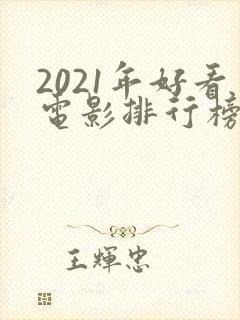 2021年好看
电影排行榜
王輝忠